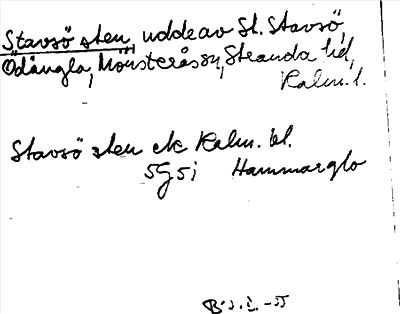 Stavsö sten, udde av St. Stavsö,
Ödängla, Mönsterås sn, Stranda hd,
Kalm. l.
Stavsö sten ek Kalm. bl.
5G5i Hammarglo